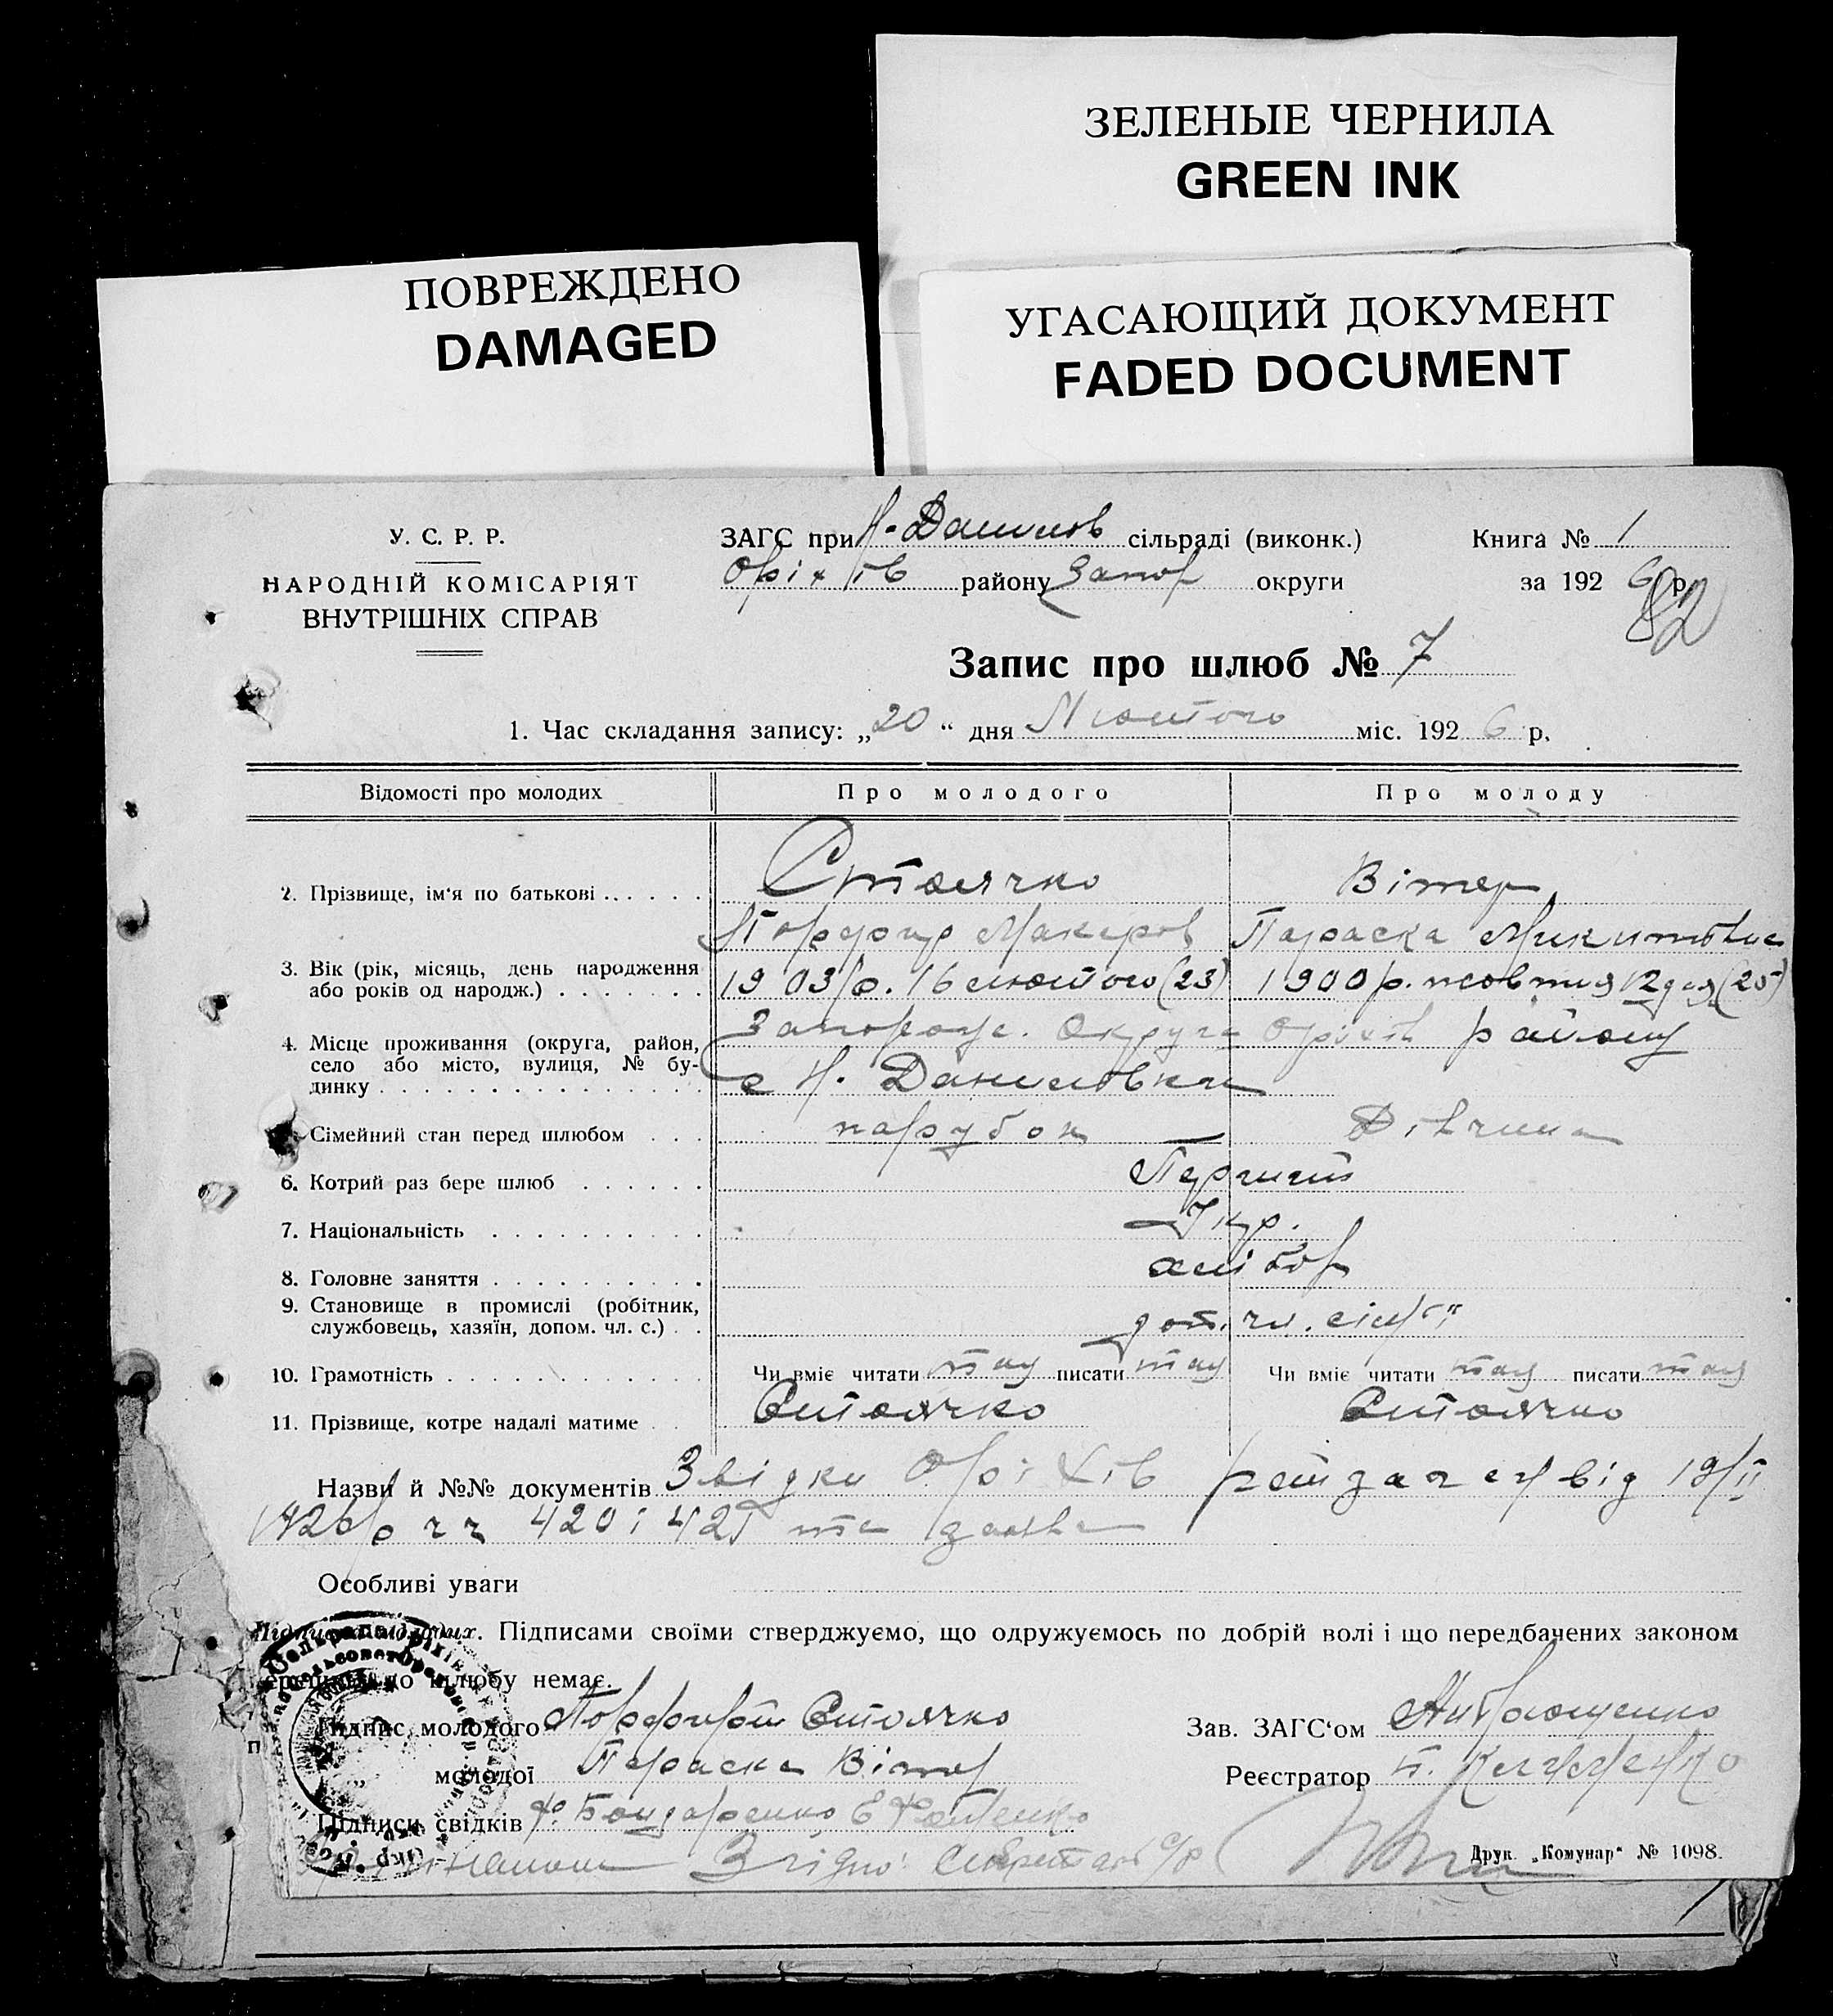 ЗЕЛЕНЫЕ ЧЕРНИЛА
GREEN INK
ПОВРЕЖДЕНО
DAMAGED
УГАСАЮЩИЙ ДОКУМЕНТ
FADED DOCUMENT
У. С. Р. Р.
НАРОДНІЙ КОМІСАРІЯТ
ВНУТРІШНІХ СПРАВ
ЗАГС при Н-Данилов сільраді (виконк.)
Оріхів району Запор округи
Книга № 1
за 192 6 р.
82
Запис про шлюб № 7
1. Час складання запису: „20“ дня Лютого міс. 192 6 р.
Відомості про молодих Про молодого Про молоду
2. Прізвище, ім'я по батькові Стоячко Вітер
Порфир Макаров Параска Микитівна
3. Вік (рік, місяць, день народження або років од народж.) 1903 р. 16 лютого (23) 1900 р. жовтня 12 дня (25)
4. Місце проживання (округа, район, село або місто, вулиця, № будинку Запорозь. Округа Оріхів району
с Н. Даниловка
Сімейний стан перед шлюбом парубок Дівчина
6. Котрий раз бере шлюб Перший
7. Національність Укр.
8. Головне заняття хлібор
9. Становище в промислі (робітник, службовець, хазяїн, допом. чл. с.) доп. чл. сім'ї
10. Грамотність Чи вміє читати так писати так Чи вміє читати так писати так
11. Прізвище, котре надалі матиме Стоячко Стоячко
Назви й №№ документів Звідки Оріхів від 19/II
1926 р 420 і 421 та заява
Особливі уваги
Підписи молодих. Підписами своїми стверджуємо, що одружуємось по добрій волі і що передбачених законом
перешкод до шлюбу немає.
Підпис молодого Порфирій Стоячко
Зав. ЗАГС'ом
„ молодої Параска Вітер
Реєстратор
Підписи свідків Бондаренко
Згідно: Секретарь с/р
Друк. „Комунар“ № 1098.